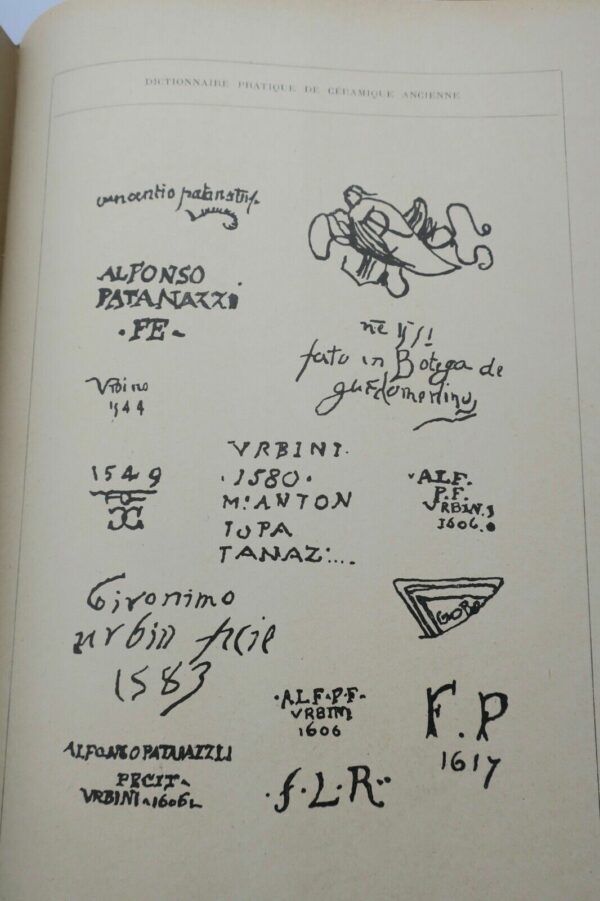 DICTIONNAIRE PRATIQUE DE CÉRAMIQUE ANCIENNE
ALFONSO
PATANAZZI
·FE~
fato in Botega de
Vrbino
1544
1549
VRBINI·
·1580·
Mº ANTON
IOPA
TANAZ:...
ALF.
P.F.
VRBIN.
1606.
Gironimo
urbin fecie
1583
GORE
·ALF·P·F·
VRBINI
1606
F.P
1617
ALFONSO PATNAZZI
FECIT·
VRBINI·1606
·f·L·R··